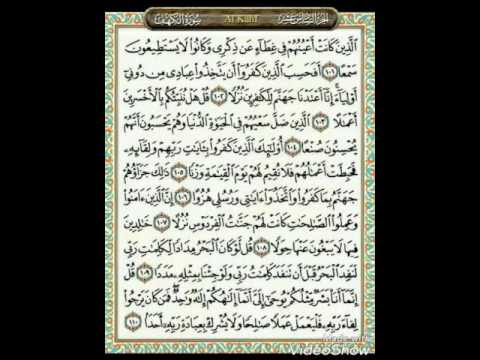 سورة الكهف Al Kahf الجزء السادس عشر
ٱلَّذِينَ كَانَتْ أَعْيُنُهُمْ فِى غِطَآءٍ عَن ذِكْرِى وَكَانُوا۟ لَا يَسْتَطِيعُونَ
سَمْعًا ١٠١ أَفَحَسِبَ ٱلَّذِينَ كَفَرُوٓا۟ أَن يَتَّخِذُوا۟ عِبَادِى مِن دُونِىٓ
أَوْلِيَآءَ إِنَّآ أَعْتَدْنَا جَهَنَّمَ لِلْكَٰفِرِينَ نُزُلًا ١٠٢ قُلْ هَلْ نُنَبِّئُكُم بِٱلْأَخْسَرِينَ
أَعْمَٰلًا ١٠٣ ٱلَّذِينَ ضَلَّ سَعْيُهُمْ فِى ٱلْحَيَوٰةِ ٱلدُّنْيَا وَهُمْ يَحْسَبُونَ أَنَّهُمْ
يُحْسِنُونَ صُنْعًا ١٠٤ أُو۟لَٰٓئِكَ ٱلَّذِينَ كَفَرُوا۟ بِـَٔايَٰتِ رَبِّهِمْ وَلِقَآئِهِۦ
فَحَبِطَتْ أَعْمَٰلُهُمْ فَلَا نُقِيمُ لَهُمْ يَوْمَ ٱلْقِيَٰمَةِ وَزْنًا ١٠٥ ذَٰلِكَ جَزَآؤُهُمْ
جَهَنَّمُ بِمَا كَفَرُوا۟ وَٱتَّخَذُوٓا۟ ءَايَٰتِى وَرُسُلِى هُزُوًا ١٠٦ إِنَّ ٱلَّذِينَ ءَامَنُوا۟
وَعَمِلُوا۟ ٱلصَّٰلِحَٰتِ كَانَتْ لَهُمْ جَنَّٰتُ ٱلْفِرْدَوْسِ نُزُلًا ١٠٧ خَٰلِدِينَ
فِيهَا لَا يَبْغُونَ عَنْهَا حِوَلًا ١٠٨ قُل لَّوْ كَانَ ٱلْبَحْرُ مِدَادًا لِّكَلِمَٰتِ رَبِّى
لَنَفِدَ ٱلْبَحْرُ قَبْلَ أَن تَنفَدَ كَلِمَٰتُ رَبِّى وَلَوْ جِئْنَا بِمِثْلِهِۦ مَدَدًا ١٠٩ قُلْ
إِنَّمَآ أَنَا۠ بَشَرٌ مِّثْلُكُمْ يُوحَىٰٓ إِلَىَّ أَنَّمَآ إِلَٰهُكُمْ إِلَٰهٌ وَٰحِدٌ فَمَن كَانَ يَرْجُوا۟
لِقَآءَ رَبِّهِۦ فَلْيَعْمَلْ عَمَلًا صَٰلِحًا وَلَا يُشْرِكْ بِعِبَادَةِ رَبِّهِۦٓ أَحَدًۢا ١١٠
VideoShow